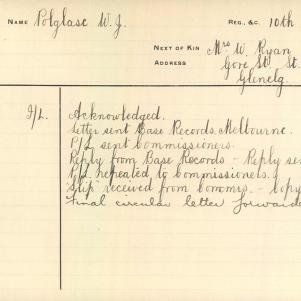 NAME Polglase W. J. REG. &C. 10th
NEXT OF KIN Mrs W. Ryan
ADDRESS Gore St. St.
Glenelg
I/L. Acknowledged.
Letter sent Base Records Melbourne.
P/L sent Commissioners.
Reply from Base Records - Reply sen
P/L repeated to Commissioners.
"Slip" received from Commis. - Copy
Final circular letter forwarde